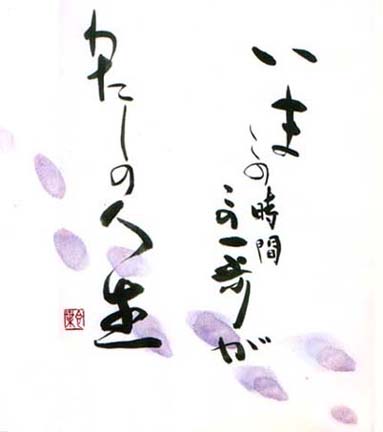 いま
この時間
この一歩が
わたしの人生